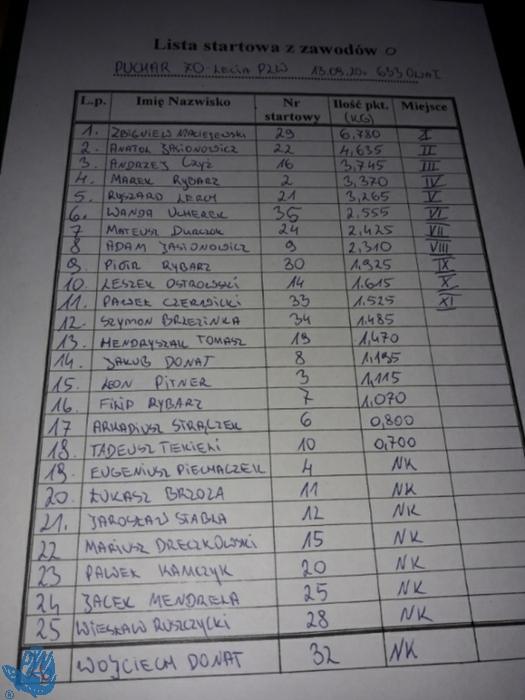 Lista startowa z zawodów o
PUCHAR 70-LECIA PZW 13.09.20
L.p. Imię Nazwisko Nr startowy Ilość pkt. (KG) Miejsce
1. ZBIGNIEW MACIEJEWSKI 29 6,780 I
2. ANATOL JASIONOWICZ 22 4,635 II
3. ANDRZEJ CZYŻ 16 3,745 III
4. MAREK RYBARZ 2 3,370 IV
5. RYSZARD LERCH 21 3,265 V
6. WANDA UCHEREK 35 2,555 VI
7 MATEUSZ DURCZOK 24 2,425 VII
8 ADAM JASIONOWICZ 9 2,310 VIII
9. PIOTR RYBARZ 30 1,925 IX
10. LESZEK OSTROWSKI 14 1.615 X
11. PAWEŁ CZERWICKI 33 1.525 XI
12. SZYMON BRZEZINKA 34 1.485
13. HENDRYSZAK TOMASZ 19 1,470
14. JAKUB DONAT 8 1.195
15. LEON PITNER 3 1,115
16. FILIP RYBARZ 7 1.070
17 ARKADIUSZ STRĄCZEK 6 0,800
18. TADEUSZ TEKIELI 10 0,700
19. EUGENIUSZ PIECHACZEK 4 NK
20. ŁUKASZ BRZOZA 11 NK
21. JAROSŁAW STABLA 12 NK
22 MARIUSZ DRECZKOWSKI 15 NK
23 PAWEŁ KAMCZYK 20 NK
24 JACEK MENDRELA 25 NK
25 WIESŁAW RUSZCZYCKI 28 NK
WOJCIECH DONAT 32 NK